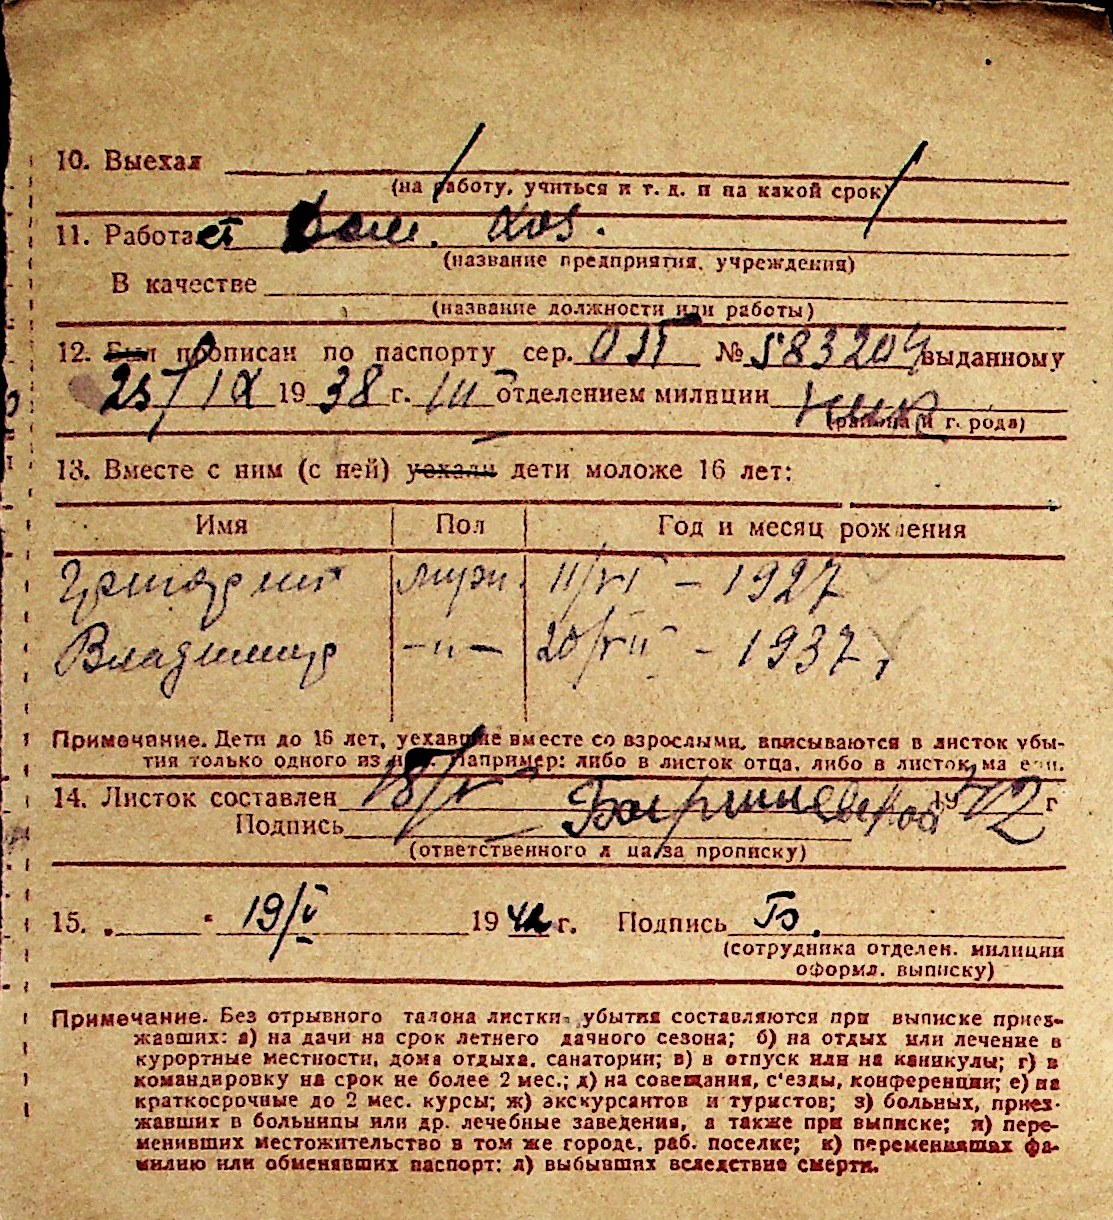 10. Выехал
(на работу, учиться и т. д. и на какой срок)
11. Работает Дом. хоз.
(название предприятия, учреждения)
В качестве
(название должности или работы)
12. Был прописан по паспорту сер. № 583204 выданному
25/IX 1938 г. III отделением милиции
(района и г. рода)
13. Вместе с ним (с ней) уехали дети моложе 16 лет:
Имя Пол Год и месяц рождения
муж. 11/VI - 1927
Владимир -"- 20/VII - 1937
Примечание. Дети до 16 лет, уехавшие вместе со взрослыми, вписываются в листок убы-
тия только одного из них. Например: либо в листок отца, либо в листок матери.
14. Листок составлен 18/V 1942 г
Подпись
(ответственного лица за прописку)
15. 19/V 1942 г. Подпись Б.
(сотрудника отделен. милиции
оформл. выписку)
Примечание. Без отрывного талона листки убытия составляются при выписке приез-
жавших: а) на дачи на срок летнего дачного сезона; б) на отдых или лечение в
курортные местности, дома отдыха, санатории; в) в отпуск или на каникулы; г) в
командировку на срок не более 2 мес.; д) на совещания, с'езды, конференции; е) на
краткосрочные до 2 мес. курсы; ж) экскурсантов и туристов; з) больных, приез-
жавших в больницы или др. лечебные заведения, а также при выписке; и) пере-
менивших местожительство в том же городе, раб. поселке; к) переменивших фа-
милию или обменявших паспорт; л) выбывших вследствие смерти.